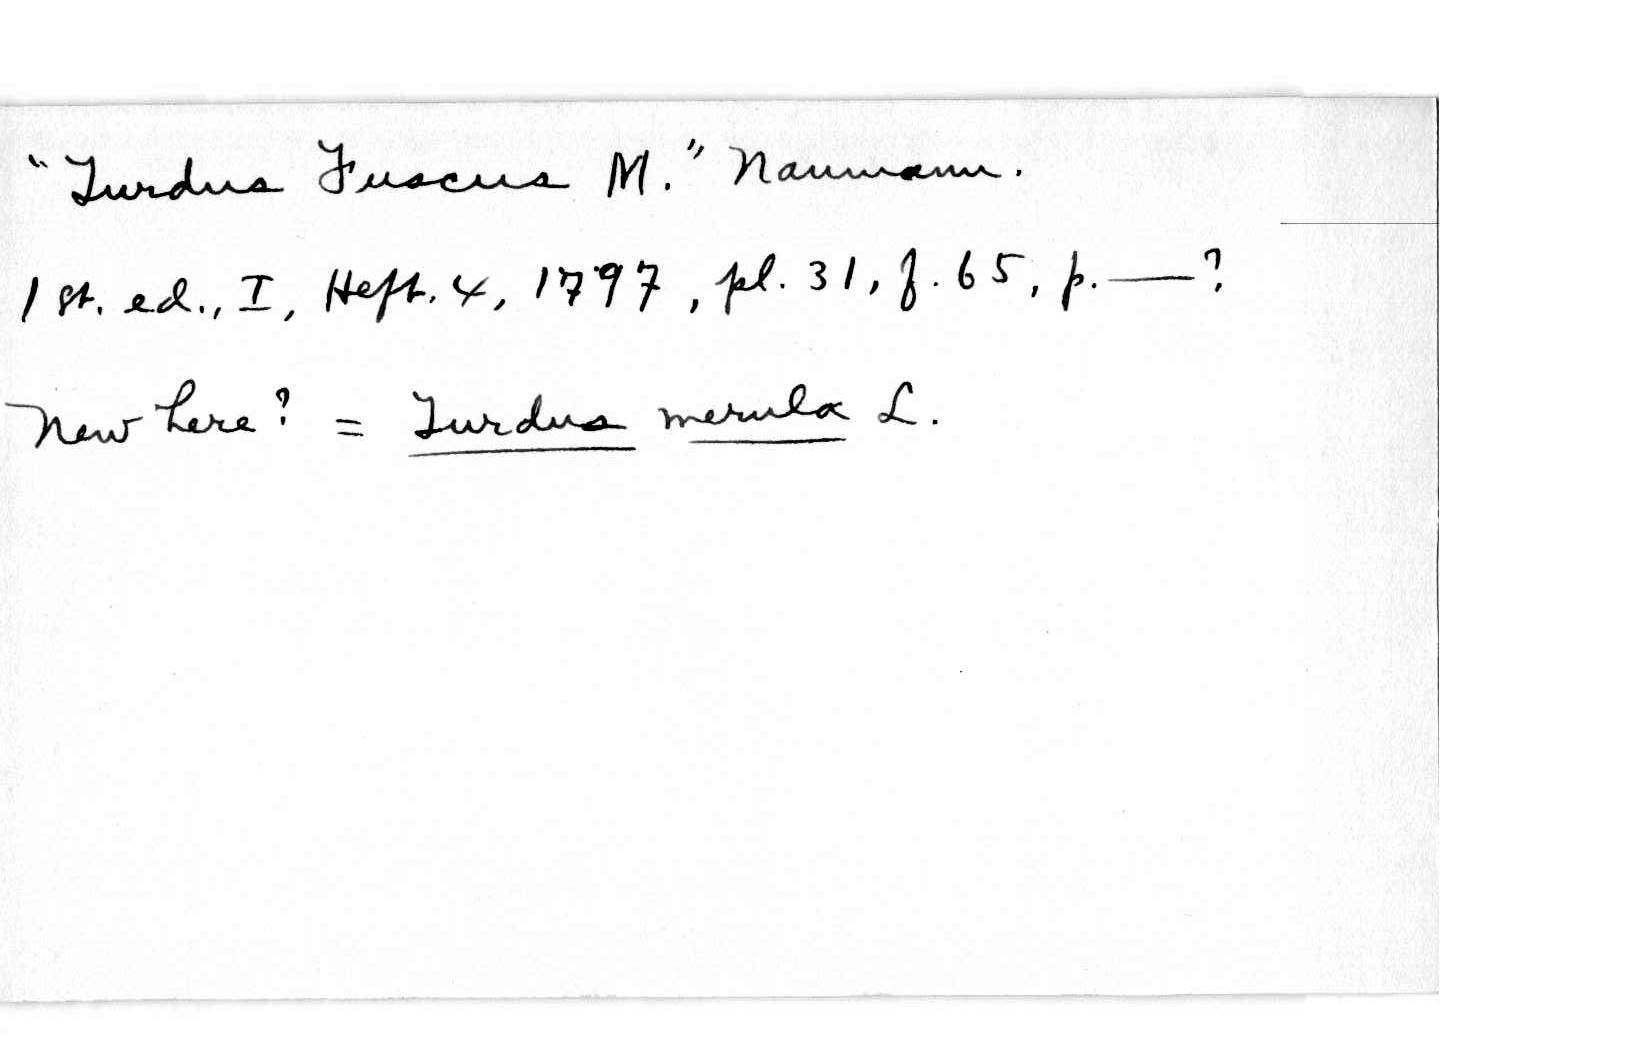 "Turdus Fuscus M." Naumann.
1 st. ed., I, Heft. 4, 1797, pl. 31, f. 65, p. —?
New here? = Turdus merula L.